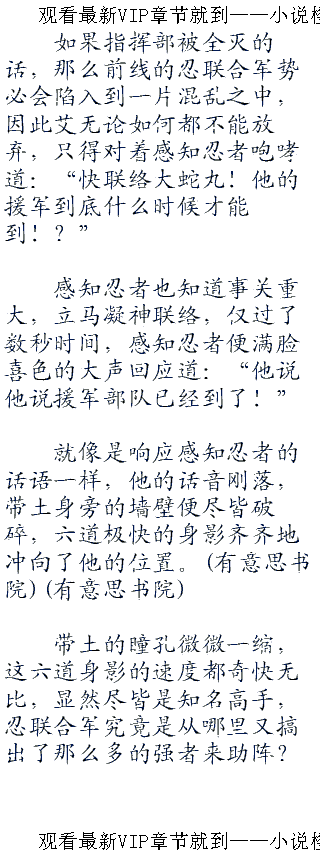 观看最新VIP章节就到——小说检
如果指挥部被全灭的
话，那么前线的忍联合军势
必会陷入到一片混乱之中，
因此艾无论如何都不能放
弃，只得对着感知忍者咆哮
道：“快联络大蛇丸！他的
援军到底什么时候才能
到！？”
感知忍者也知道事关重
大，立马凝神联络，仅过了
数秒时间，感知忍者便满脸
喜色的大声回应道：“他说
他说援军部队已经到了！”
就像是响应感知忍者的
话语一样，他的话音刚落，
带土身旁的墙壁便尽皆破
碎，六道极快的身影齐齐地
冲向了他的位置。(有意思书
院)(有意思书院)
带土的瞳孔微微一缩，
这六道身影的速度都奇快无
比，显然尽皆是知名高手，
忍联合军究竟是从哪里又搞
出了那么多的强者来助阵？
观看最新VIP章节就到——小说检